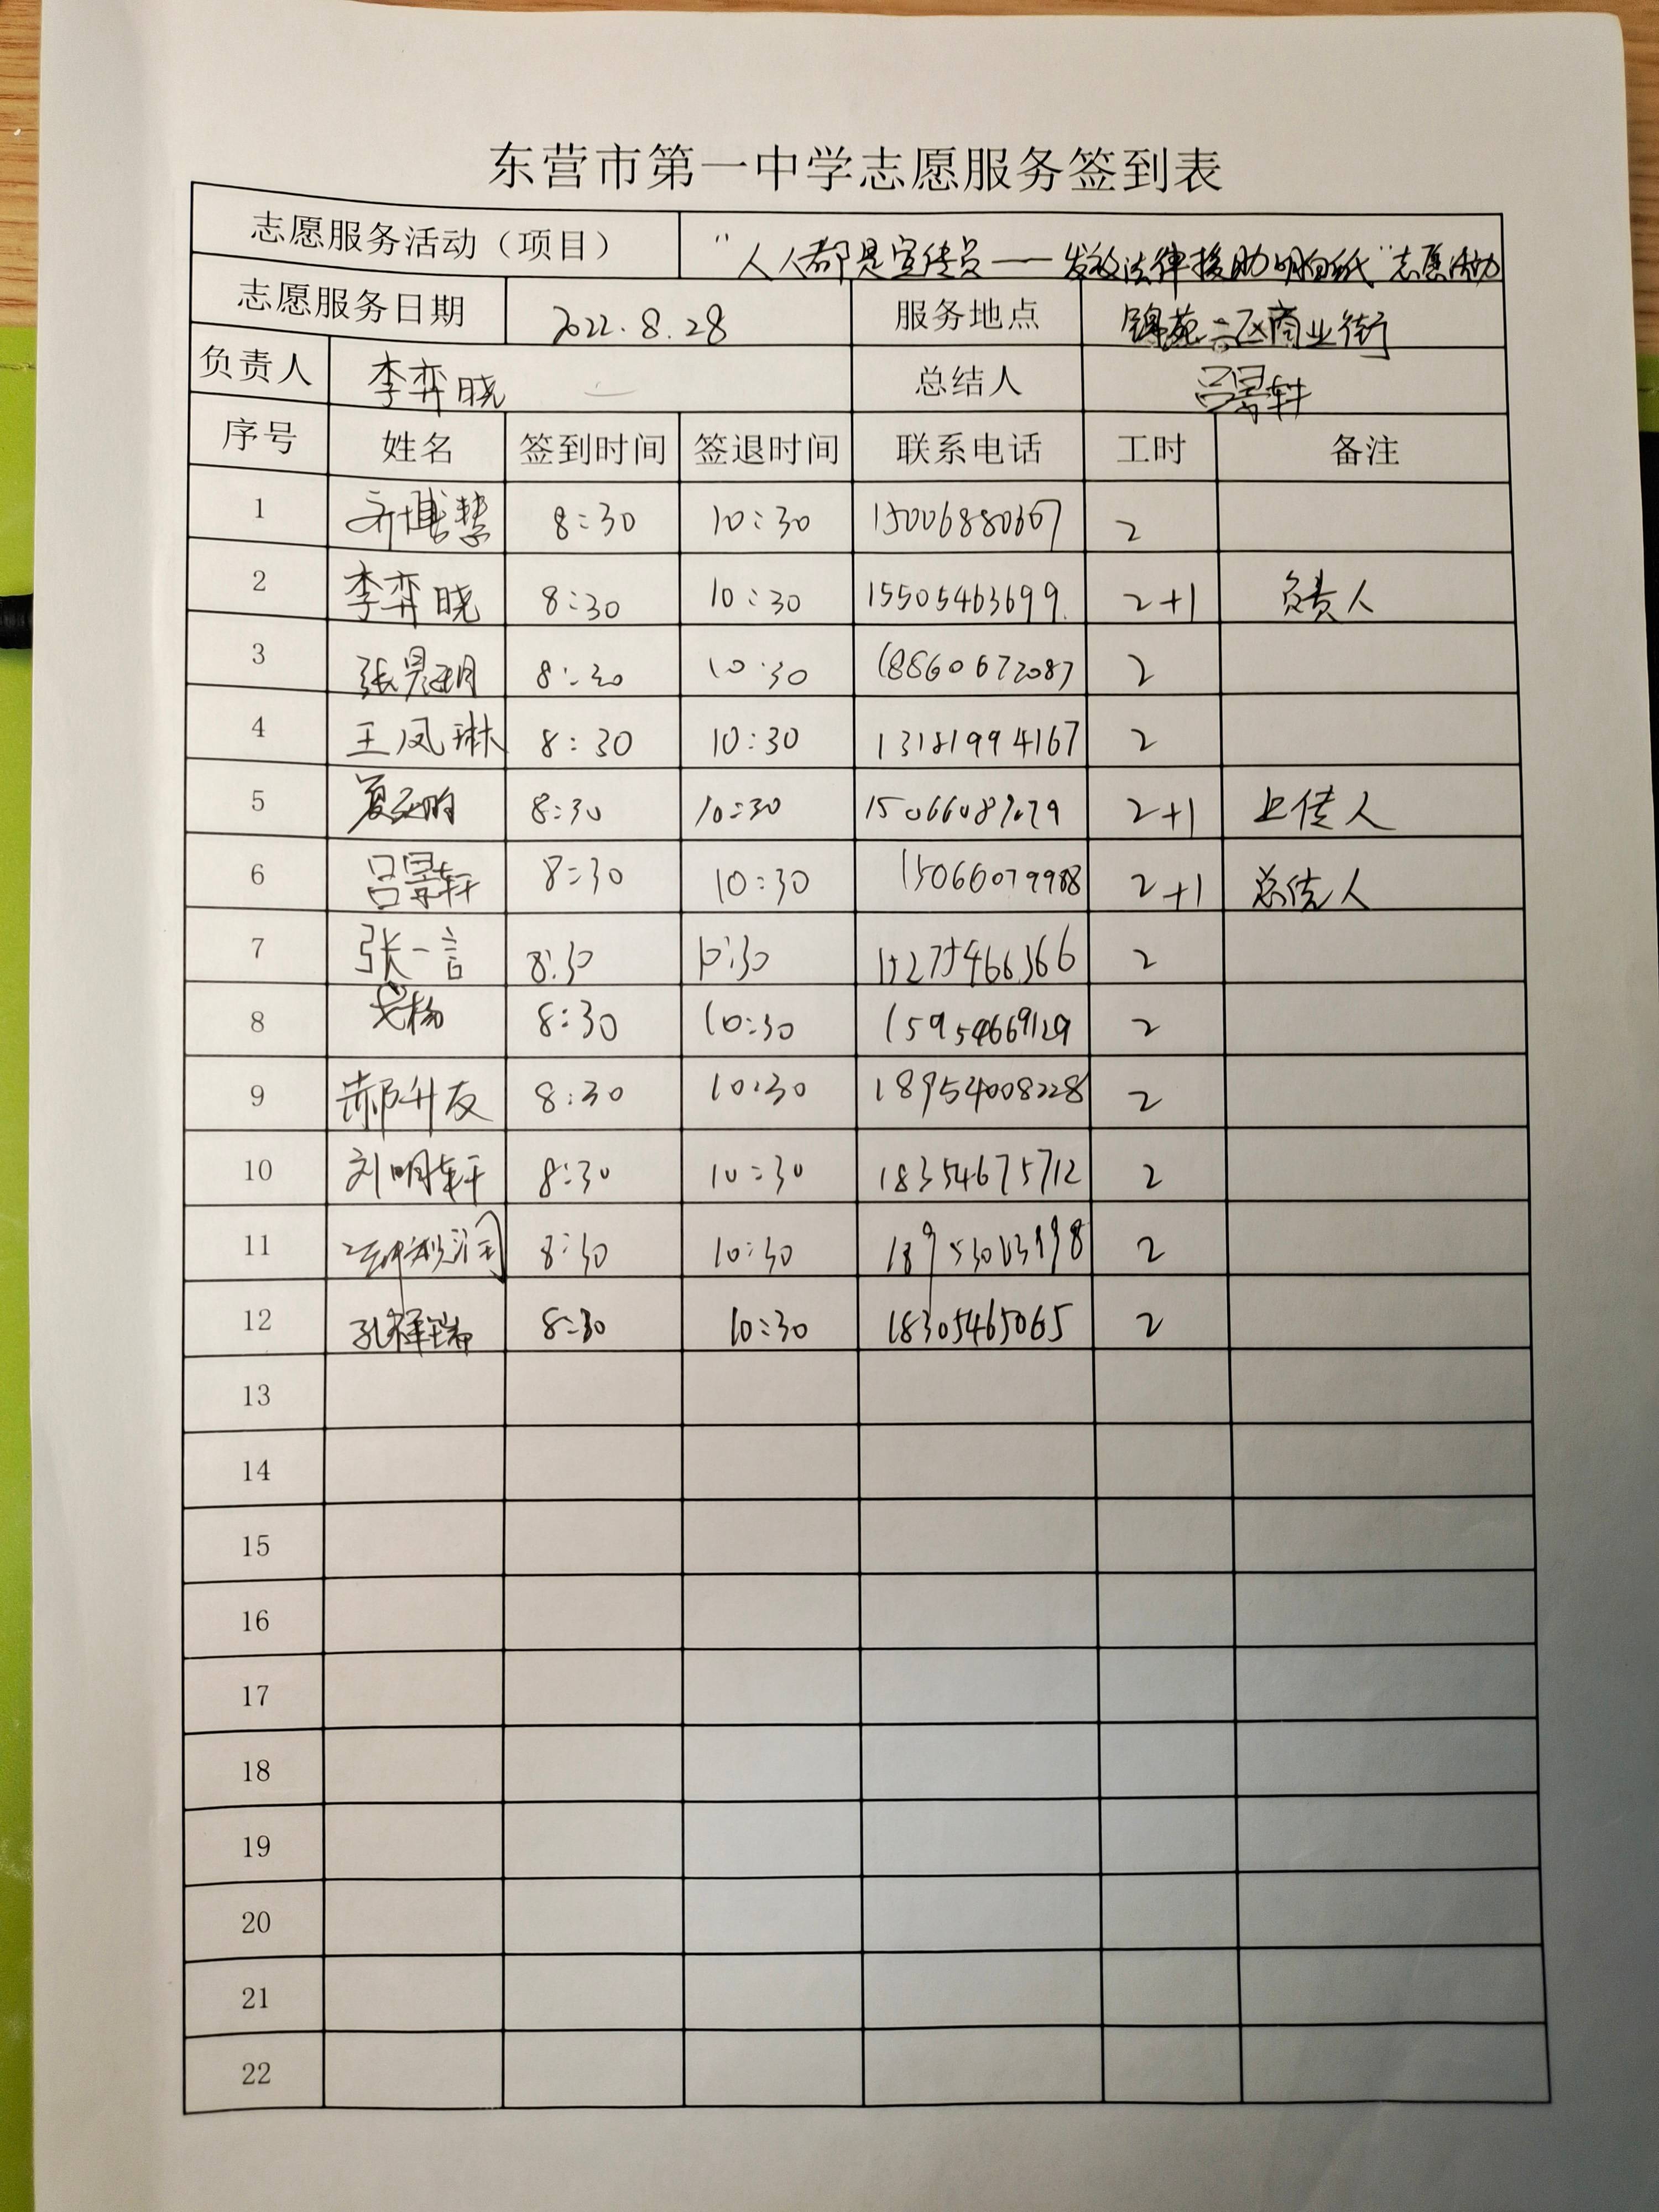 东营市第一中学志愿服务签到表
志愿服务活动（项目） “人人都是宣传员——发放法律援助明白纸”志愿活动
志愿服务日期 2022.8.28 服务地点 锦苑二区商业街
负责人 李弈晓 总结人 吕景轩
序号 姓名 签到时间 签退时间 联系电话 工时 备注
1 齐博慧 8:30 10:30 15006880367 2
2 李弈晓 8:30 10:30 15505463699 2+1 负责人
3 8:30 10:30 18860672087 2
4 王凤琳 8:30 10:30 13181994167 2
5 8:30 10:30 2+1 上传人
6 吕景轩 8:30 10:30 15066079988 2+1 总结人
7 张一言 8:30 10:30 15275466366 2
8 戈杨 8:30 10:30 15954669129 2
9 郝升友 8:30 10:30 18954008228 2
10 刘明轩 8:30 10:30 18354675712 2
11 8:30 10:30 2
12 孔祥瑞 8:30 10:30 18305465065 2
13
14
15
16
17
18
19
20
21
22